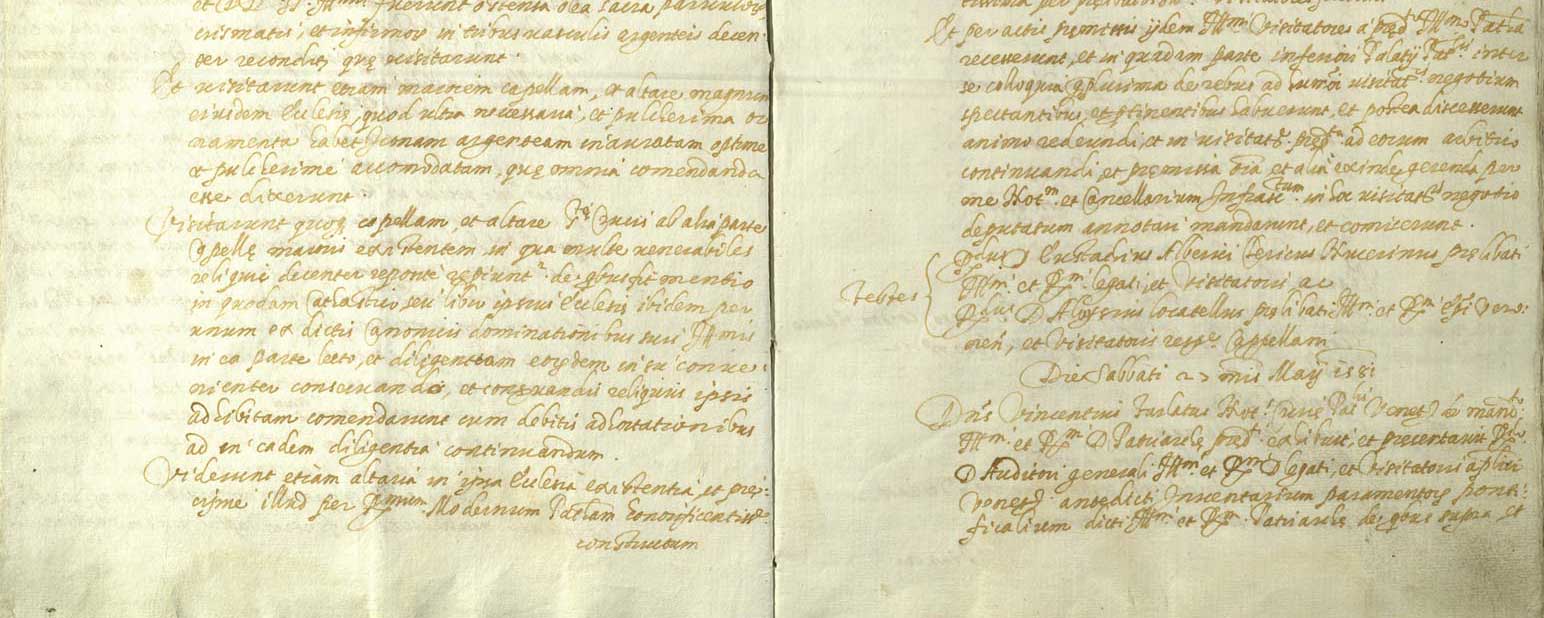 et DD. SS. Ill.mis fuerunt ostensa olea sacra parvulorum
crismatis, et infirmorum in tribus vasculis argenteis decen-
ter reconditis quę visitarunt.
Et visitarunt etiam maiorem capellam, et altare magnum
eiusdem Ecclesię, quod ultra necessaria, et pulcherima or
namenta habet Iconam argenteam inauratam optime
et pulcherime accomodatam, quę omnia comendanda
esse dixerunt.
Visitarunt quoq. capellam, et altare S.tę Crucis ab alia parte
Cappellę maioris existentem in qua multę venerabiles
reliquię decenter reposite reperiunt.r de quibus fit mentio
in quodam Catastico, seu libro ipsius Ecclesię ibidem per
unum ex dictis Canonicis dominationibus suis Ill.mis
in ea parte lecto, et diligentiam eorumdem in sic conve-
nienter conservandis, et conservandis reliquiis ipsis
adhibitam comendarunt cum debitis adhortationibus
ad in eadem diligentia continuandum.
Viderunt etiam altaria in ipsa Ecclesia existentia, et prę-
cipue illud per R.mum Modernum P͡riam honorificentiss.e
constructum
Et peractis pręmissis ijdem Ill.mi Visitatores a pred.to Ill.mo Patria
recesserunt, et in quadam parte inferiori Palatij Pat.lis inter
se colloquia q. plurima de rebus ad humõi visitat.is negotium
spectantibus, et ptinentibus habuerunt, et postea discesserunt
animo redeundi, et in visitat.e pred.ta ad eorum arbitrio
continuandi, et pręmissa oĩa et alia exinde gerenda per
me Not.m et Cancellarium Infrasc.tum in hoc visitat.is negotio
deputatum annotari mandarunt, et comiserunt.
Testes
D. Eustachius Albertii Clericus Nucerinus prelibati
Ill.mi et R.mi legati, et Visitatoris, ac
D. Aloysius locatellus prelibati Ill.mi et R.mi Epi Vero-
nen̄, et Visitatoris resp.e Cappellani
Die Sabbati 27 mẽis Maij 1581
Dñs Vincentius Not.s Curię Pat.lis Venet. de mand.to
Ill.mi et R.mi D. Patriarchę pred.ti exhibuit, et presentavit
D. Auditori generali Ill.mi et R.mi D. legati, et Visitatoris aplici
Venet. antedicti Inventarium paramentorum ponti-
ficalium dicti Ill.mi et R.mi Patriarchę de quibus supra, et